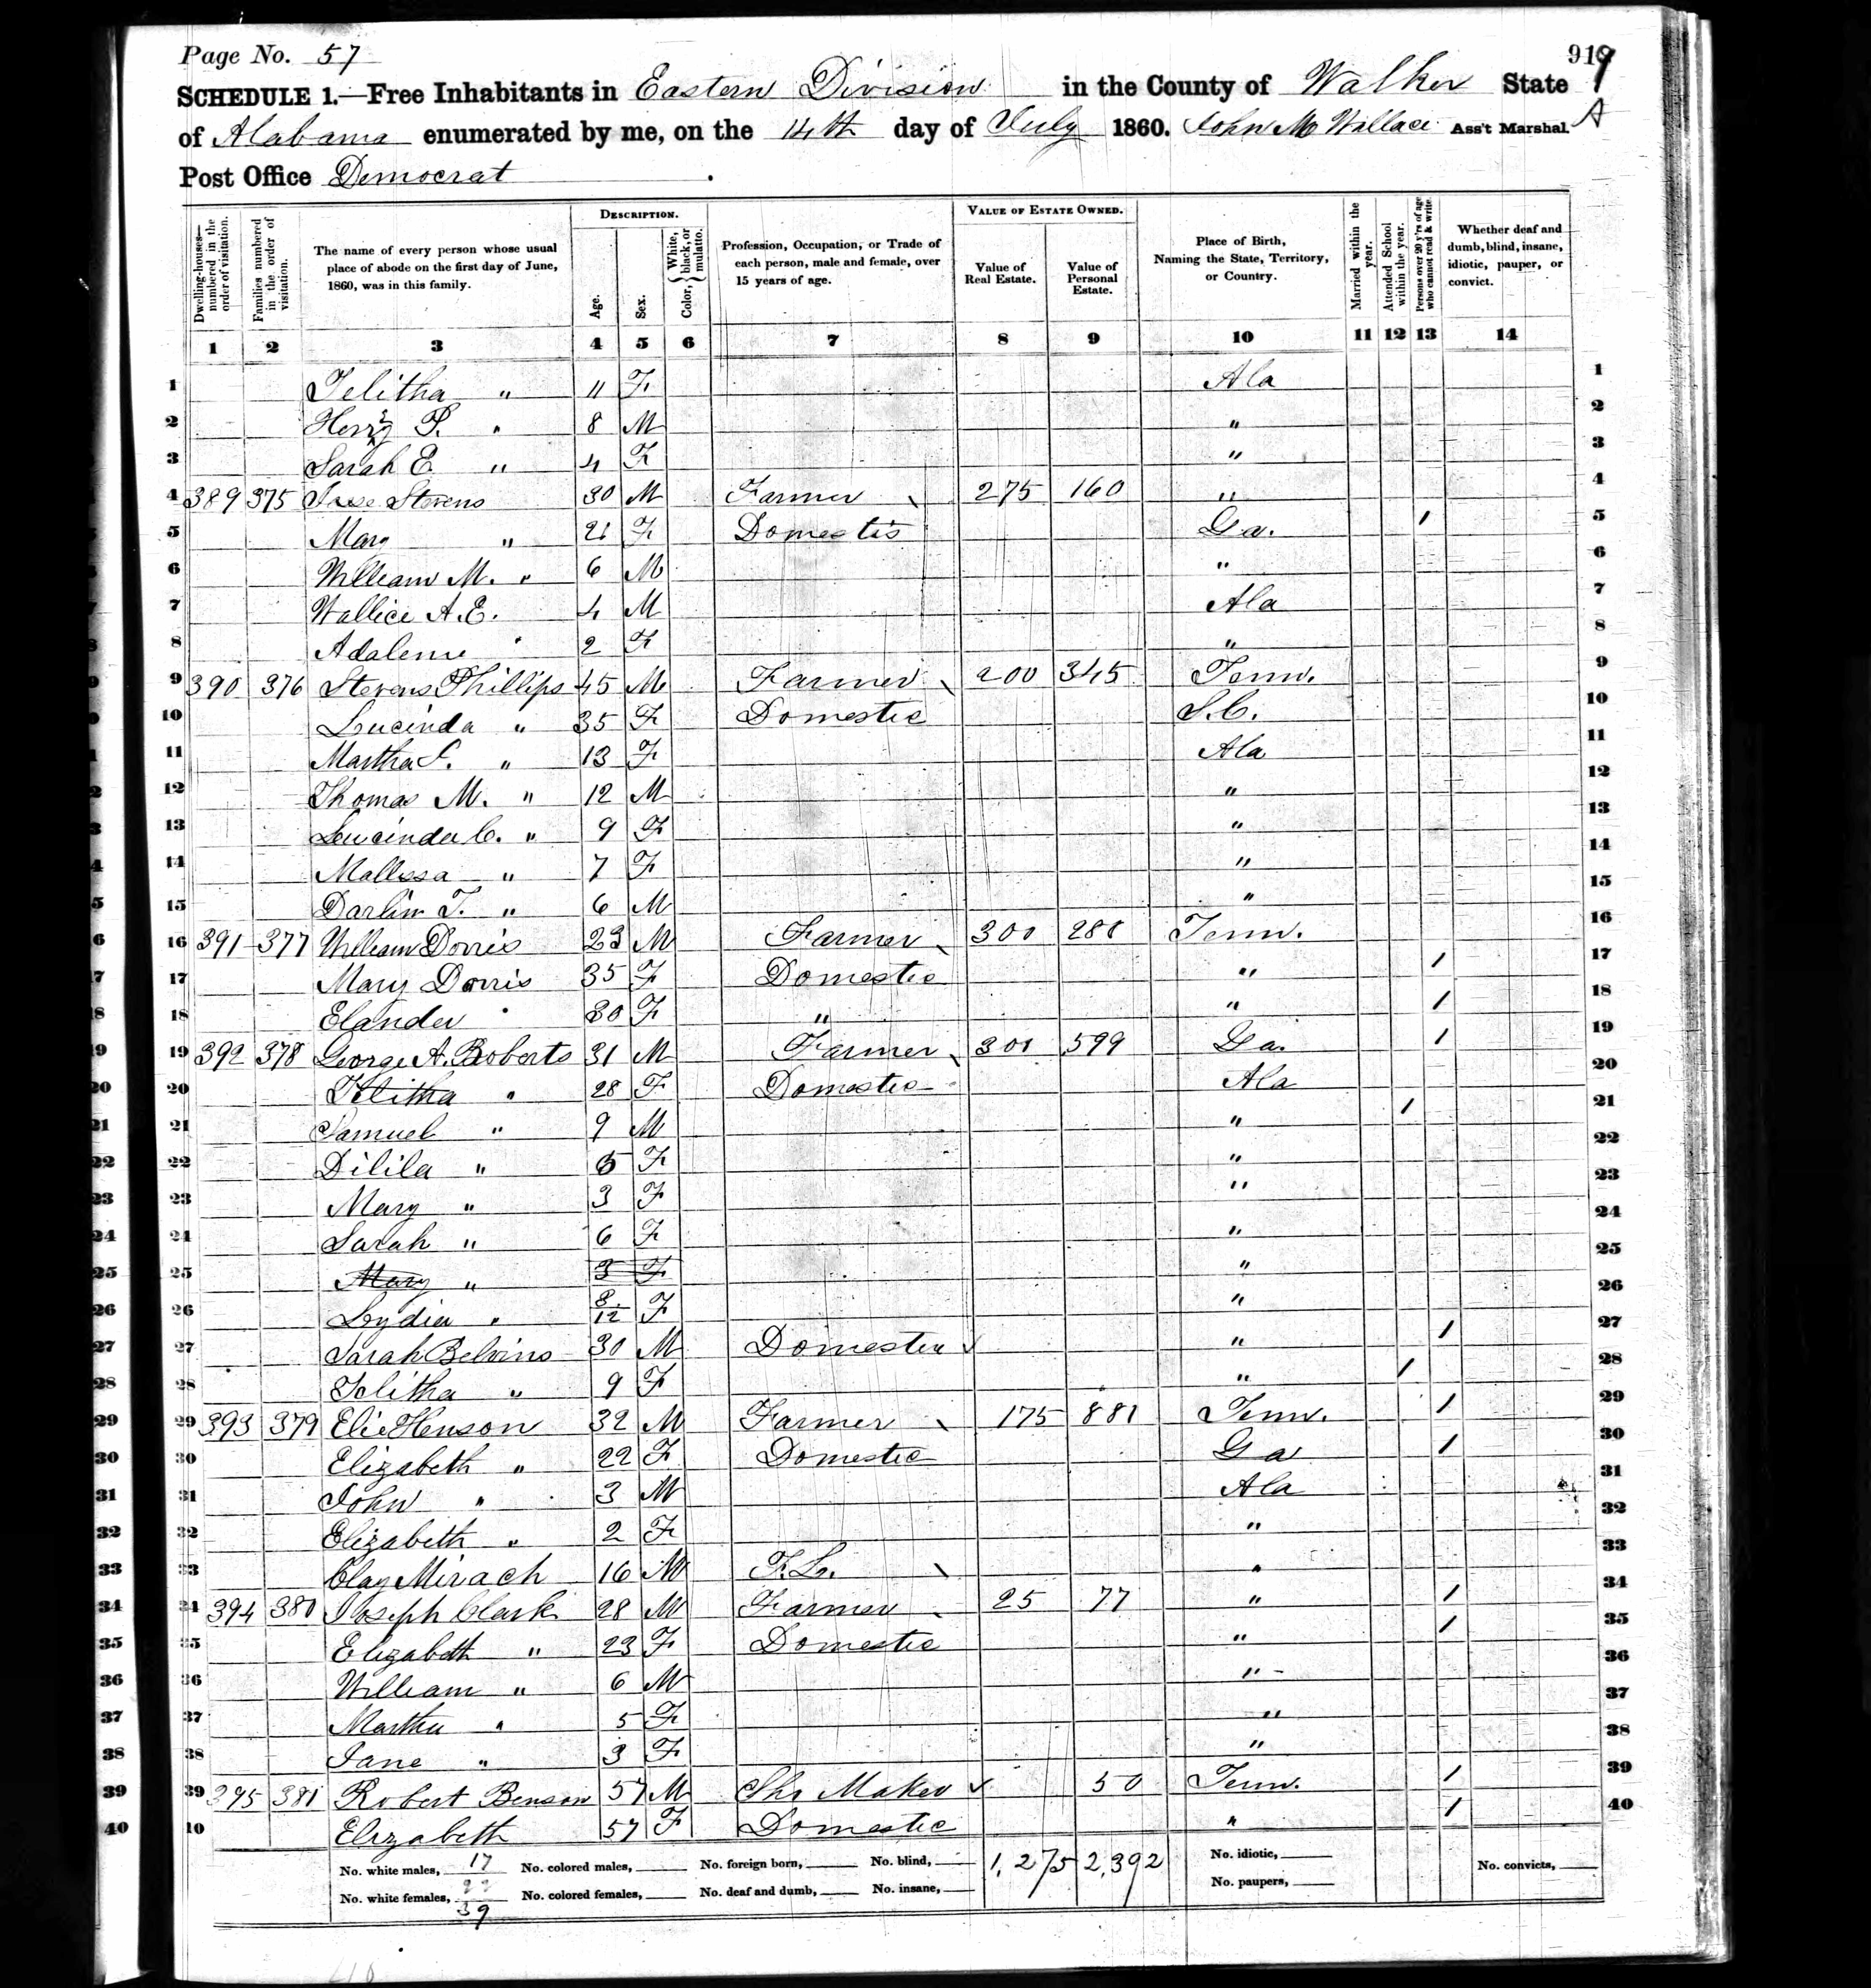 Page No. 57
919
SCHEDULE 1.—Free Inhabitants in Eastern Division in the County of Walker State
of Alabama enumerated by me, on the 14th day of July 1860. John M Wallace Ass't Marshal. A
Post Office Democrat.
Dwelling-houses—numbered in the order of visitation.
Families numbered in the order of visitation.
The name of every person whose usual place of abode on the first day of June, 1860, was in this family.
DESCRIPTION.
Age.
Sex.
Color, { White, black, or mulatto.
Profession, Occupation, or Trade of each person, male and female, over 15 years of age.
VALUE OF ESTATE OWNED.
Value of Real Estate.
Value of Personal Estate.
Place of Birth, Naming the State, Territory, or Country.
Married within the year.
Attended School within the year.
Persons over 20 y'rs of age who cannot read & write.
Whether deaf and dumb, blind, insane, idiotic, pauper, or convict.
1 2 3 4 5 6 7 8 9 10 11 12 13 14
1 Telitha " 11 F Ala 1
2 P. " 8 M " 2
3 Sarah E. " 4 F " 3
4 389 375 Stevens 30 M Farmer \ 275 160 " 4
5 Mary " 21 F Domestis Ga. / 5
6 William M. " 6 M " 6
7 Wallice A. E. 4 M Ala 7
8 Adaline " 2 F " 8
9 390 376 Stevens Phillips 45 M Farmer \ 200 345 Tenn. 9
10 Lucinda " 35 F Domestic S.C. 10
11 Martha S. " 13 F Ala 11
12 Thomas M. " 12 M " 12
13 Lucinda C. " 9 F " 13
14 Mallissa " 7 F " 14
15 Darlin T. " 6 M " 15
16 391 377 William Dorris 23 M Farmer \ 300 280 Tenn. 16
17 Mary Dorris 35 F Domestic " / 17
18 Elander " 30 F " " / 18
19 392 378 George A. Roberts 31 M Farmer \ 300 599 Ga. / 19
20 Telitha " 28 F Domestic Ala 20
21 Samuel " 9 M " / 21
22 Dilila " F " 22
23 Mary " 3 F " 23
24 Sarah " 6 F " 24
25 Mary " 3 F " 25
26 Lydia " 8/12 F " 26
27 Sarah Belvins 30 M Domestic ✓ " / 27
28 Telitha " 9 F " / 28
29 393 379 Elie Henson 32 M Farmer \ 175 881 Tenn. / 29
30 Elizabeth " 22 F Domestic Ga / 30
31 John " 3 M Ala 31
32 Elizabeth " 2 F " 32
33 Clay Mirach 16 M F. L. \ " 33
34 394 380 Joseph Clark 28 M Farmer \ 25 77 " / 34
35 Elizabeth " 23 F Domestic " / 35
36 William " 6 M " 36
37 Martha " 5 F " 37
38 Jane " 3 F " 38
39 395 381 Robert Benson 57 M Sho Maker ✓ 50 Tenn. / 39
40 Elizabeth 57 F Domestic " / 40
No. white males, 17 No. colored males, No. foreign born, No. blind, 1,275 2,392 No. idiotic, No. convicts,
No. white females, 22 No. colored females, No. deaf and dumb, No. insane, No. paupers,
39